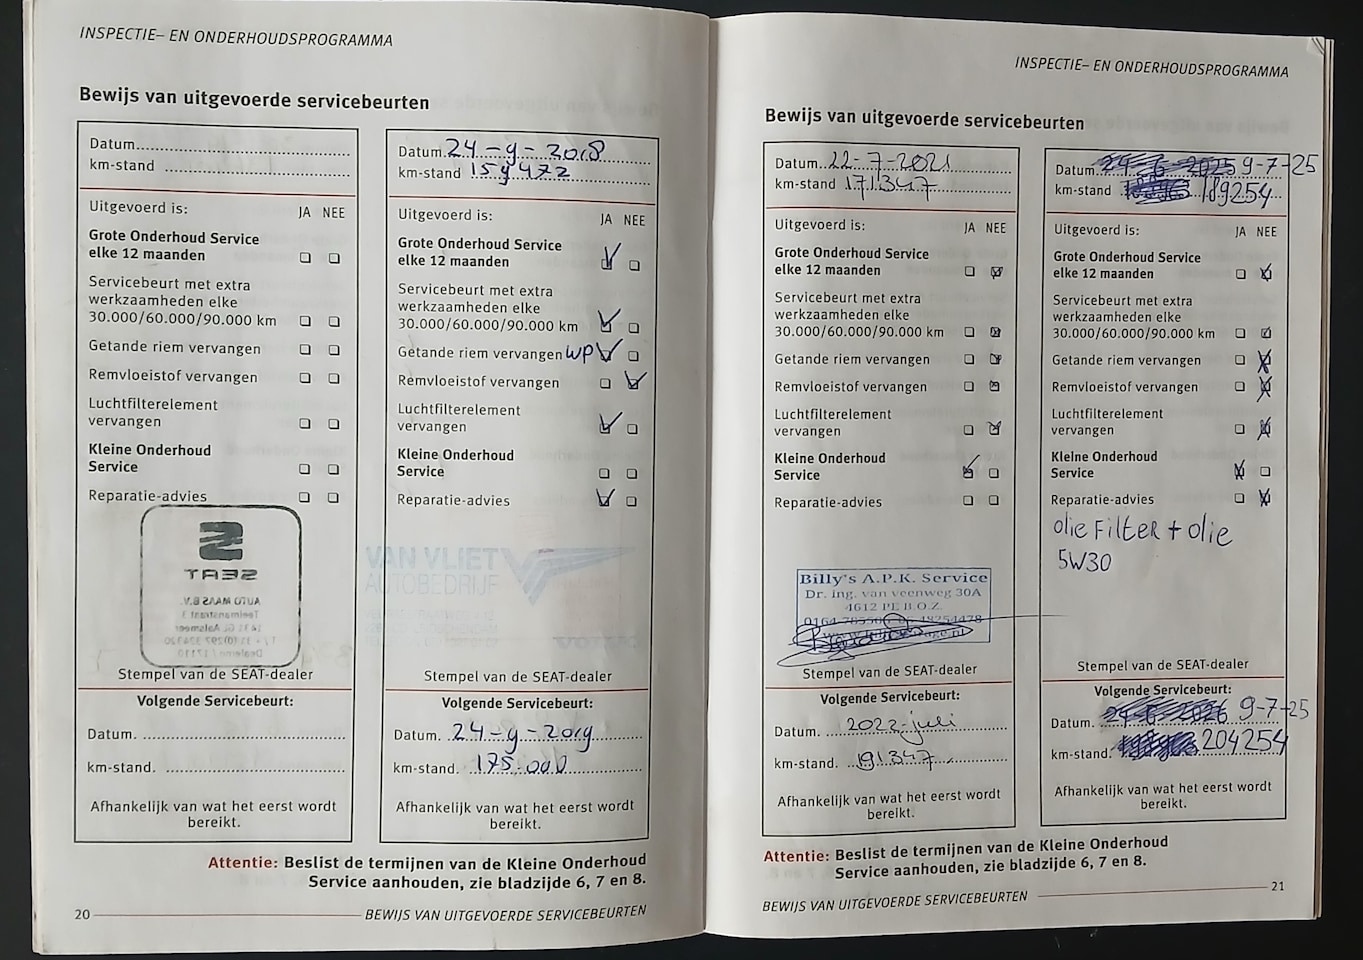 INSPECTIE– EN ONDERHOUDSPROGRAMMA
Bewijs van uitgevoerde servicebeurten
Datum
km-stand
Uitgevoerd is:
JA NEE
Grote Onderhoud Service
elke 12 maanden
Servicebeurt met extra
werkzaamheden elke
30.000/60.000/90.000 km
Getande riem vervangen
Remvloeistof vervangen
Luchtfilterelement
vervangen
Kleine Onderhoud
Service
Reparatie-advies
SEAT
AUTO MAAS B.V.
Stempel van de SEAT-dealer
Volgende Servicebeurt:
Datum.
km-stand.
Afhankelijk van wat het eerst wordt
bereikt.
Datum. 24-9-2018
km-stand 159472
Uitgevoerd is:
JA NEE
Grote Onderhoud Service
elke 12 maanden
Servicebeurt met extra
werkzaamheden elke
30.000/60.000/90.000 km
Getande riem vervangen WP
Remvloeistof vervangen
Luchtfilterelement
vervangen
Kleine Onderhoud
Service
Reparatie-advies
VAN VLIET
AUTOBEDRIJF
Stempel van de SEAT-dealer
Volgende Servicebeurt:
Datum. 24-9-2019
km-stand. 175.000
Afhankelijk van wat het eerst wordt
bereikt.
Attentie: Beslist de termijnen van de Kleine Onderhoud
Service aanhouden, zie bladzijde 6, 7 en 8.
20
BEWIJS VAN UITGEVOERDE SERVICEBEURTEN
INSPECTIE– EN ONDERHOUDSPROGRAMMA
Bewijs van uitgevoerde servicebeurten
Datum 22-7-2021
km-stand 171347
Uitgevoerd is:
JA NEE
Grote Onderhoud Service
elke 12 maanden
Servicebeurt met extra
werkzaamheden elke
30.000/60.000/90.000 km
Getande riem vervangen
Remvloeistof vervangen
Luchtfilterelement
vervangen
Kleine Onderhoud
Service
Reparatie-advies
Billy's A.P.K. Service
Dr. ing. van veenweg 30A
4612 PE B.O.Z.
Stempel van de SEAT-dealer
Volgende Servicebeurt:
Datum. 2022-juli
km-stand. 191347
Afhankelijk van wat het eerst wordt
bereikt.
Datum. 9-7-25
km-stand 189254
Uitgevoerd is:
JA NEE
Grote Onderhoud Service
elke 12 maanden
Servicebeurt met extra
werkzaamheden elke
30.000/60.000/90.000 km
Getande riem vervangen
Remvloeistof vervangen
Luchtfilterelement
vervangen
Kleine Onderhoud
Service
Reparatie-advies
olie FilteR + olie
5W30
Stempel van de SEAT-dealer
Volgende Servicebeurt:
Datum. 9-7-25
km-stand. 204254
Afhankelijk van wat het eerst wordt
bereikt.
Attentie: Beslist de termijnen van de Kleine Onderhoud
Service aanhouden, zie bladzijde 6, 7 en 8.
21
BEWIJS VAN UITGEVOERDE SERVICEBEURTEN